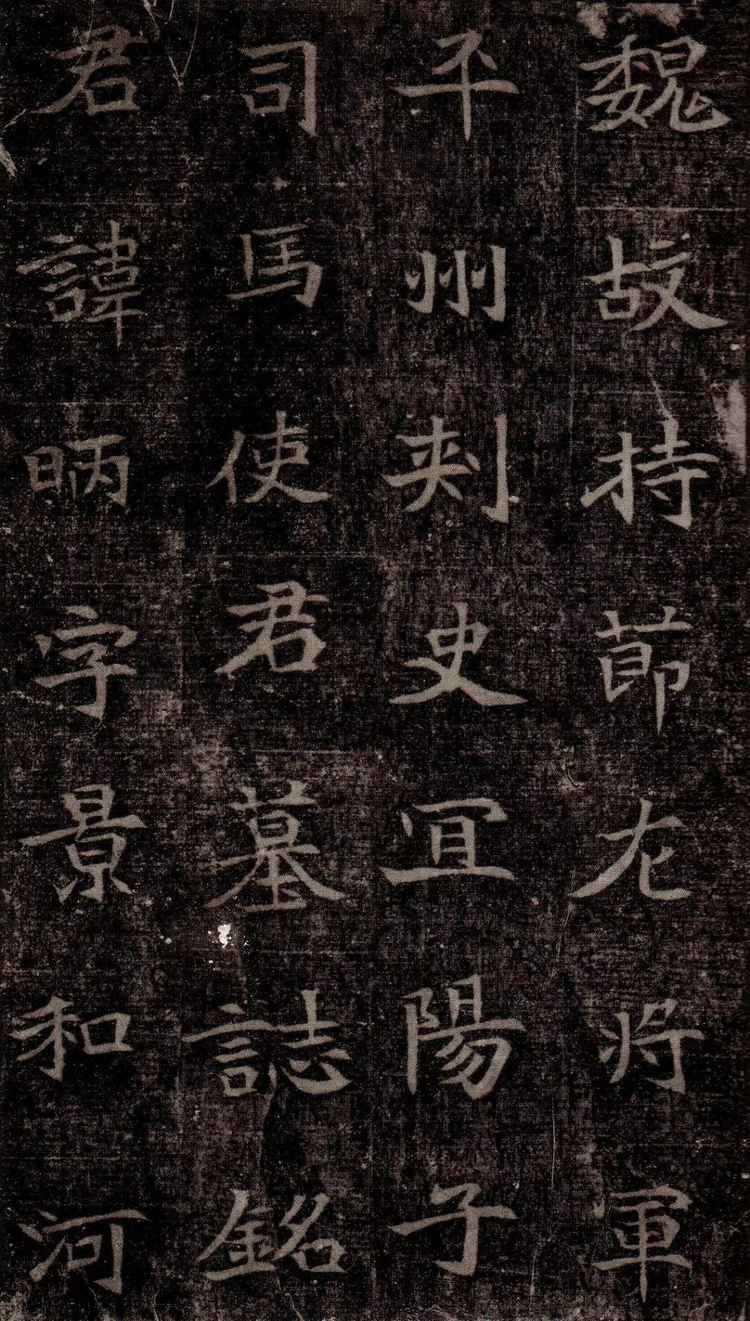 魏故持節左将軍
平州刺史冝陽子
司馬使君墓誌銘
君諱昞字景和河